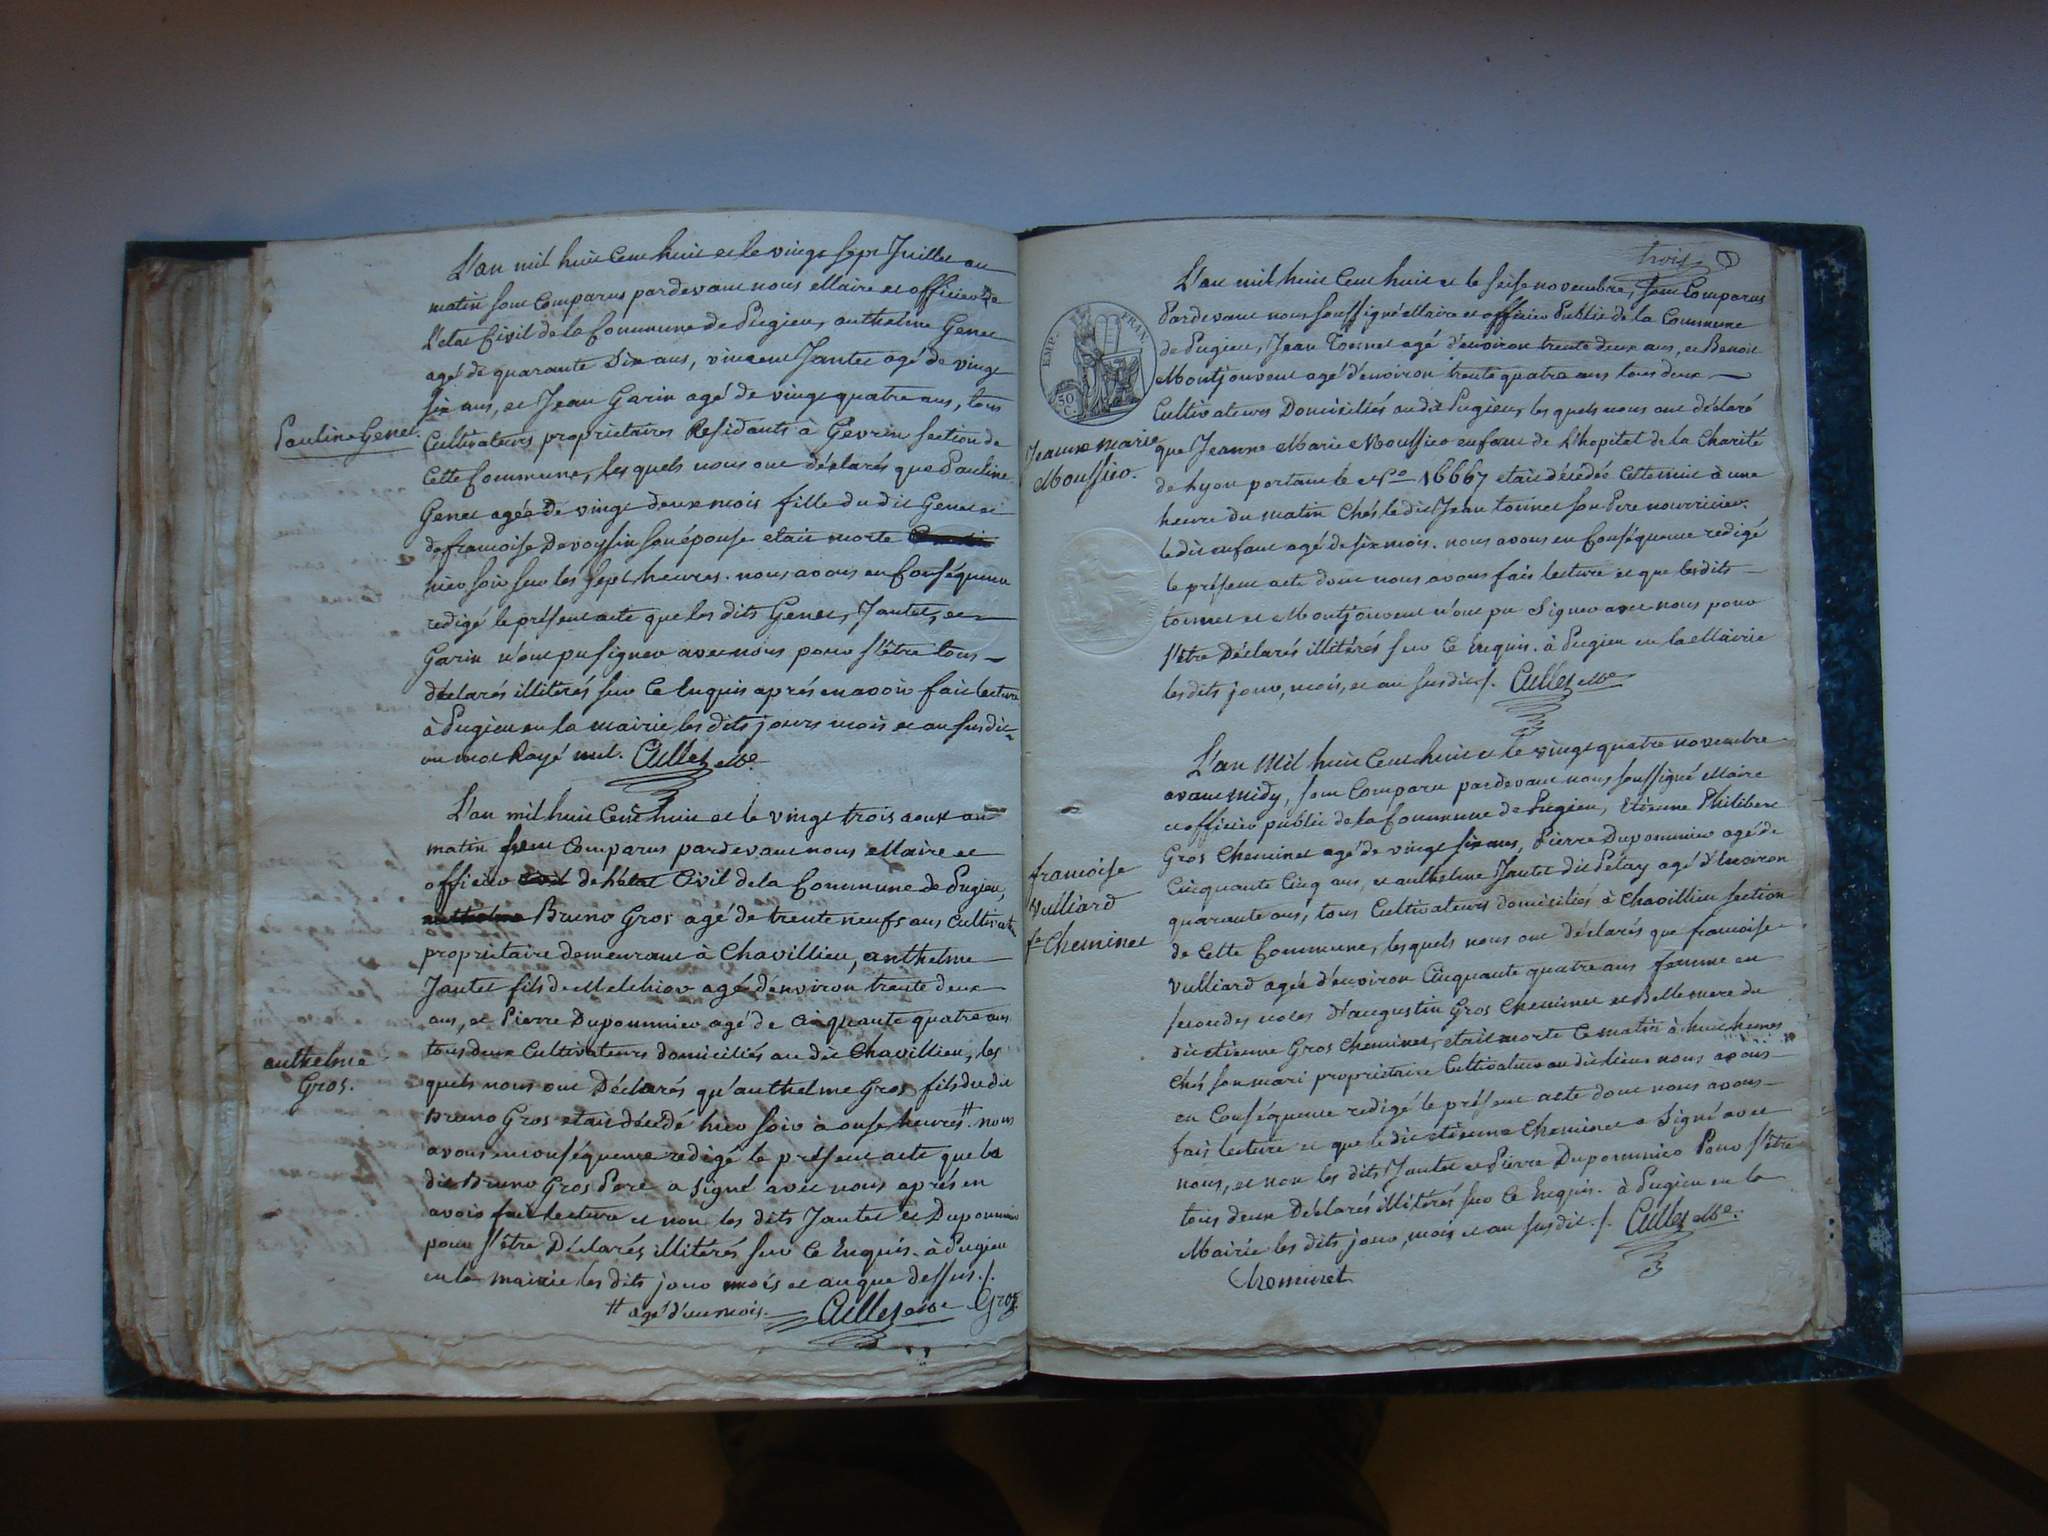 L'an mil huit Cent huit et le vingt sept Juillet au
matin sont Comparus pardevant nous Maire et officier de
L'etat Civil de la Commune de Pugieu, anthelme Genet
agé de quarante Six ans, vincent Jantet agé de vingt
six ans, et Jean Garin agé de vingt quatre ans, tous
Pauline Genet.
Cultivateurs propriétaires Residants à Gevrin section de
Cette Commune, les quels nous ont déclarés que Pauline
Genet agée de vingt deux mois fille du dit Genet et
de francoise Devoyssin son épouse etait morte
hier soir sur les sept heures. nous avons en Conséquence
redigé le présent acte que les dits Genet, Jantet, et
Garin n'ont pu signer avec nous pour s'être tous
déclarés illitérés sur Ce Enquis aprés en avoir fait lecture
à Pugieu en la mairie les dits jours mois et an susdit
un mot Rayé nul. Cullet Me
L'an mil huit Cent huit et le vingt trois aoust au
matin sont Comparus pardevant nous Maire et
officier Civil de L'état Civil de la Commune de Pugieu,
anthelme Bruno Gros agé de trente neufs ans Cultivat
propriétaire demeurant à Chavillieu, anthelme
Jantet fils de Melchior agé d'environ trente deux
ans, et Pierre Dupommier agé de Cinquante quatre ans
tous deux Cultivateurs domiciliés au dit Chavillieu, les
anthelme
Gros.
quels nous ont Déclarés qu'anthelme Gros fils du dit
Bruno Gros etait décédé hier soir à onse heures # nous
avons en conséquence redigé le présent acte que le
dit Bruno Gros Pere a signé avec nous aprés en
avoir fait lecture et non les dits Jantet et Dupommier
pour s'être Déclarés illitérés sur Ce Enquis. à Pugieu
en la mairie les dits jour mois et an que dessus ./.
# agé d'un mois. Cullet Me Gros
trois
L'an mil huit Cent huit et le seise novembre, sont Comparus
Pardevant nous soussigné Maire et officier Public de la Commune
de Pugieu, Jean Toernet agé d'environ trente deux ans, et Benoit
Montjouvent agé d'environ trente quatre ans tous deux
EMP. FRAN.
50 C.
Cultivateurs Domiciliés au dit Pugieu, les quels nous ont déclaré
Jeanne marie
Moussier.
que Jeanne Marie Moussier enfant de L'hopital de la Charité
de Lyon portant le No 16667 etait décédée Cette nuit à une
heure du matin Chés le dit Jean tornet son Pere nourricier.
le dit enfant agé de six mois. nous avons en Conséquence redigé
le présent acte dont nous avons fait lecture et que les dits
tornet et Montjouvent n'ont pu Signer avec nous pour
s'être Déclarés illitérés sur Ce Enquis. à Pugieu en la Mairie
les dits jour, mois, et an susdit ./. Cullet Me
L'an Mil huit Cent huit et le vingt quatre novembre
avant midy, sont Comparu pardevant nous soussigné Maire
et officier public de la Commune de Pugieu, Etienne Philibert
Gros Cheminet agé de vingt six ans, Pierre Dupommier agé de
Cinquante Cinq ans, et anthelme Jantet dit Pétay agé d'Environ
francoise
Vulliard
fe Cheminet
quarante ans, tous Cultivateurs domiciliés à Chavillieu section
de Cette Commune, lesquels nous ont déclarés que francoise
Vulliard agée d'environ Cinquante quatre ans femme en
secondes noces d'augustin Gros Cheminet et Belle mere du
dit etienne Gros Cheminet, etait morte Ce matin à huit heures
Chés son mari propriétaire Cultivateur au dit lieu nous avons
en Conséquence redigé le présent acte dont nous avons
fait lecture et que le dit etienne Cheminet a Signé avec
nous, et non les dits Jantet et Pierre Dupommier Pour s'être
tous deux Déclarés illitérés sur Ce Enquis. à Pugieu en la
Mairie les dits jour, mois et an susdit ./. Cullet Me.
Cheminet